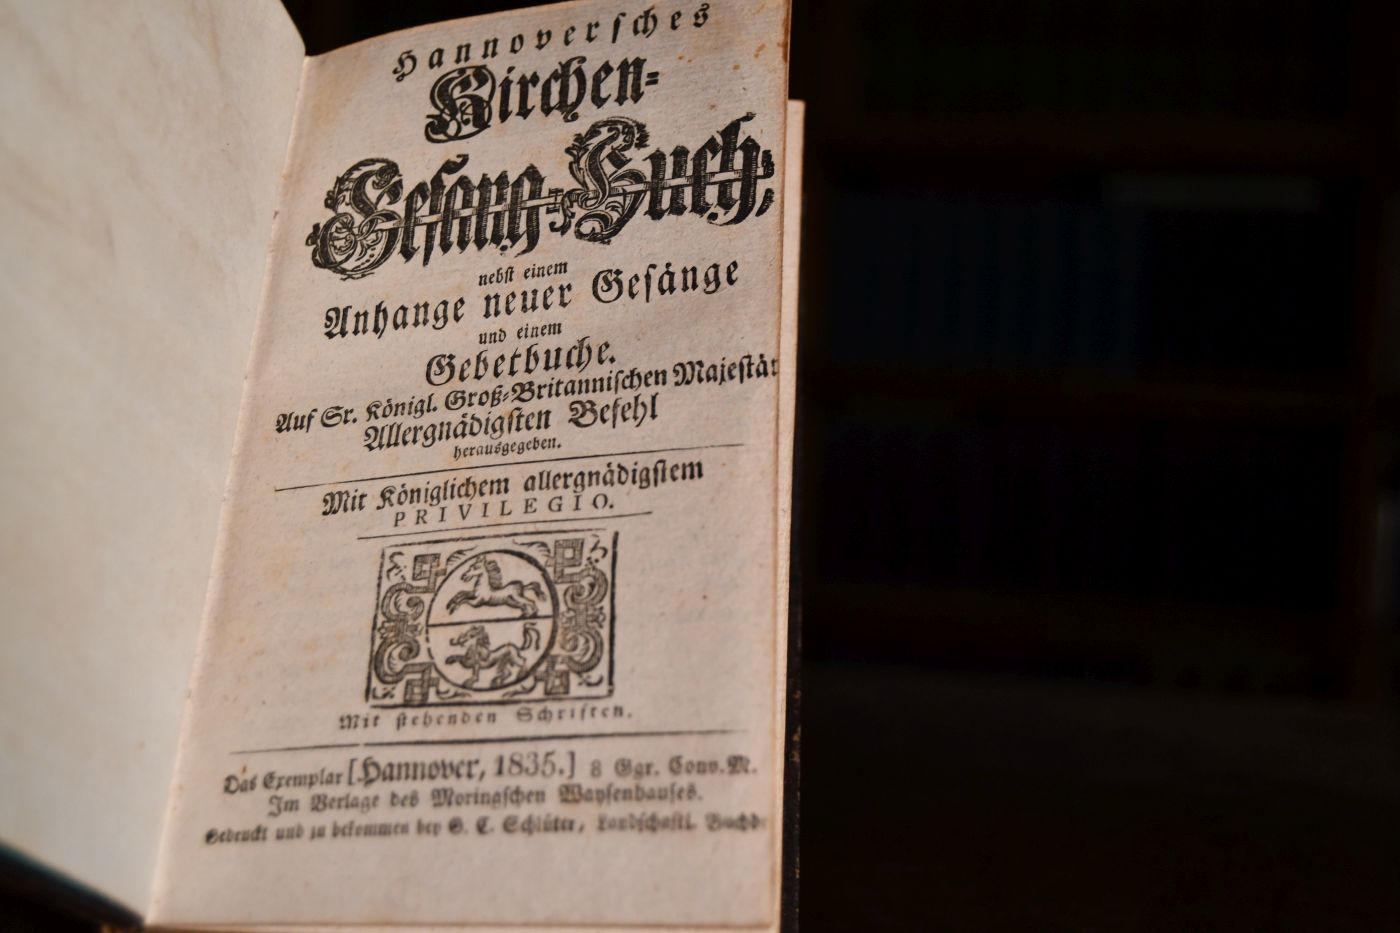 Hannoversches
Kirchen-
Gesang-Buch,
nebst einem
Anhange neuer Gesänge
und einem
Gebetbuche.
Auf Sr. Königl. Groß-Britannischen Majestät
Allergnädigsten Befehl
herausgegeben.
Mit Königlichem allergnädigstem
PRIVILEGIO.
Mit stehenden Schriften.
Das Exemplar [Hannover, 1835.] 8 Ggr. Conv. M.
Im Verlage des Moringschen Waysenhauses.
Gedruckt und zu bekommen bey S. C. Schlüter, Landschaftl. Buchd